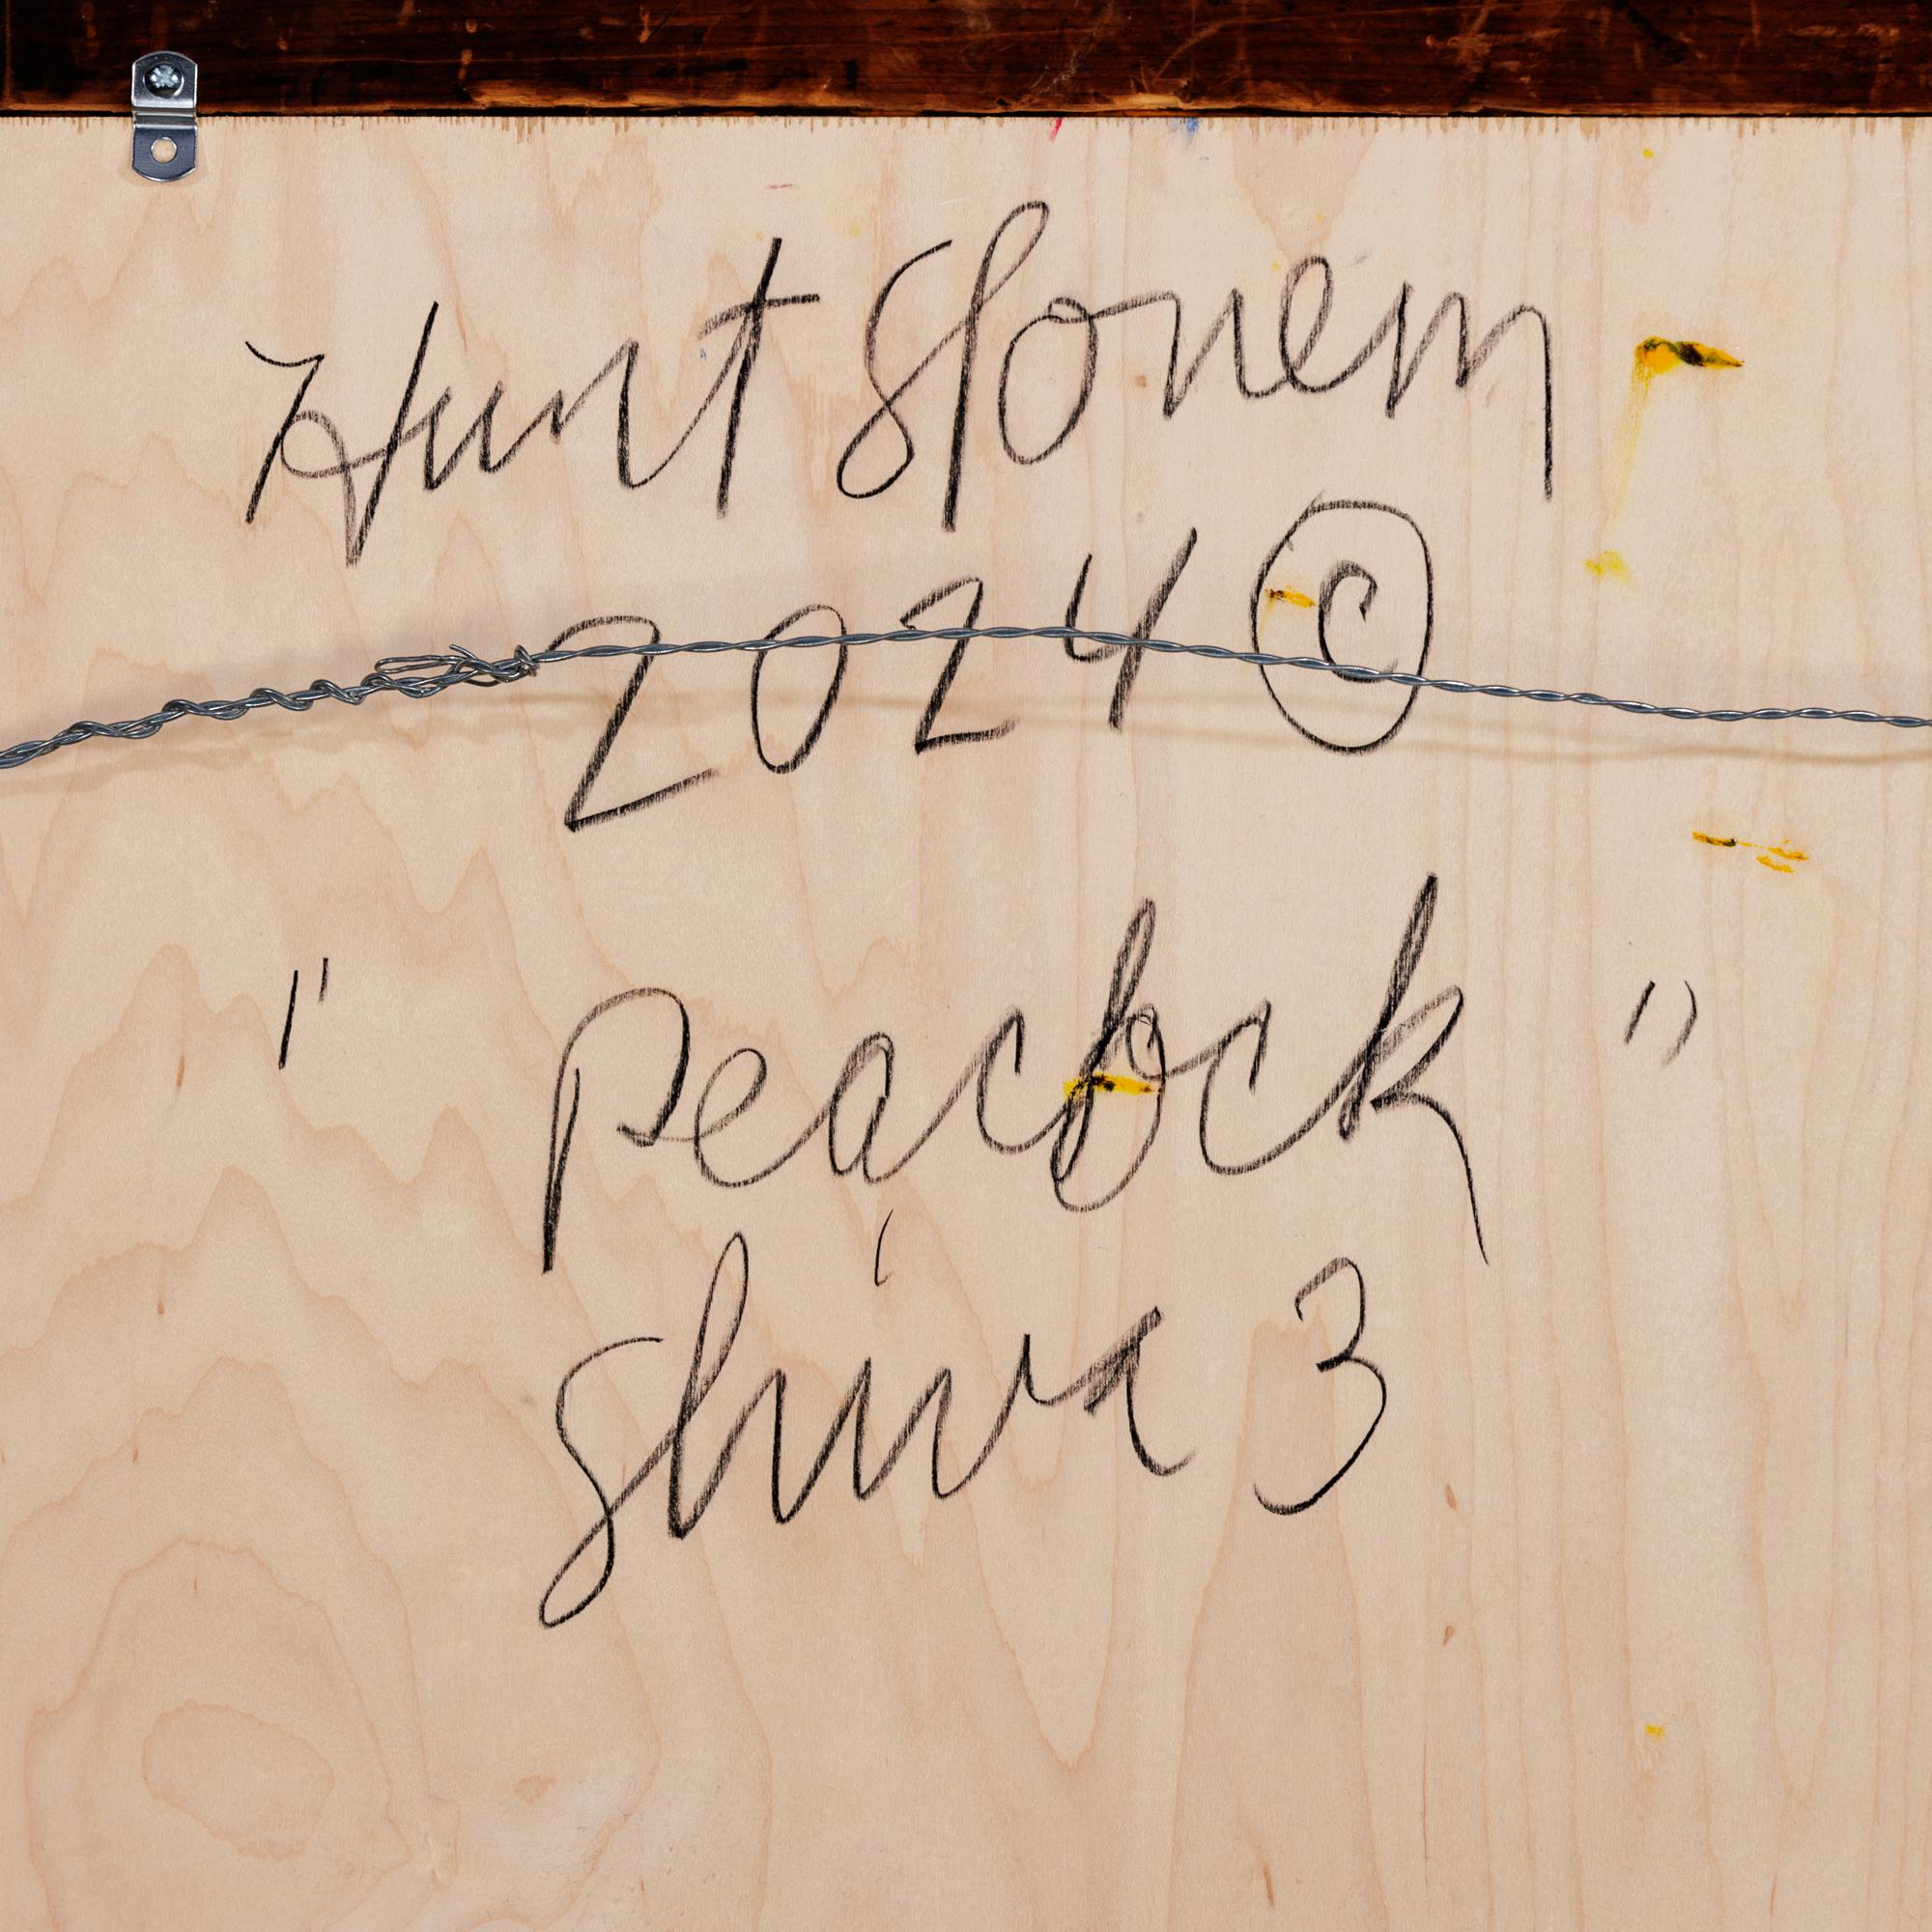 Hunt Slonem
2024 ©
"Peacock"
Shiva 3